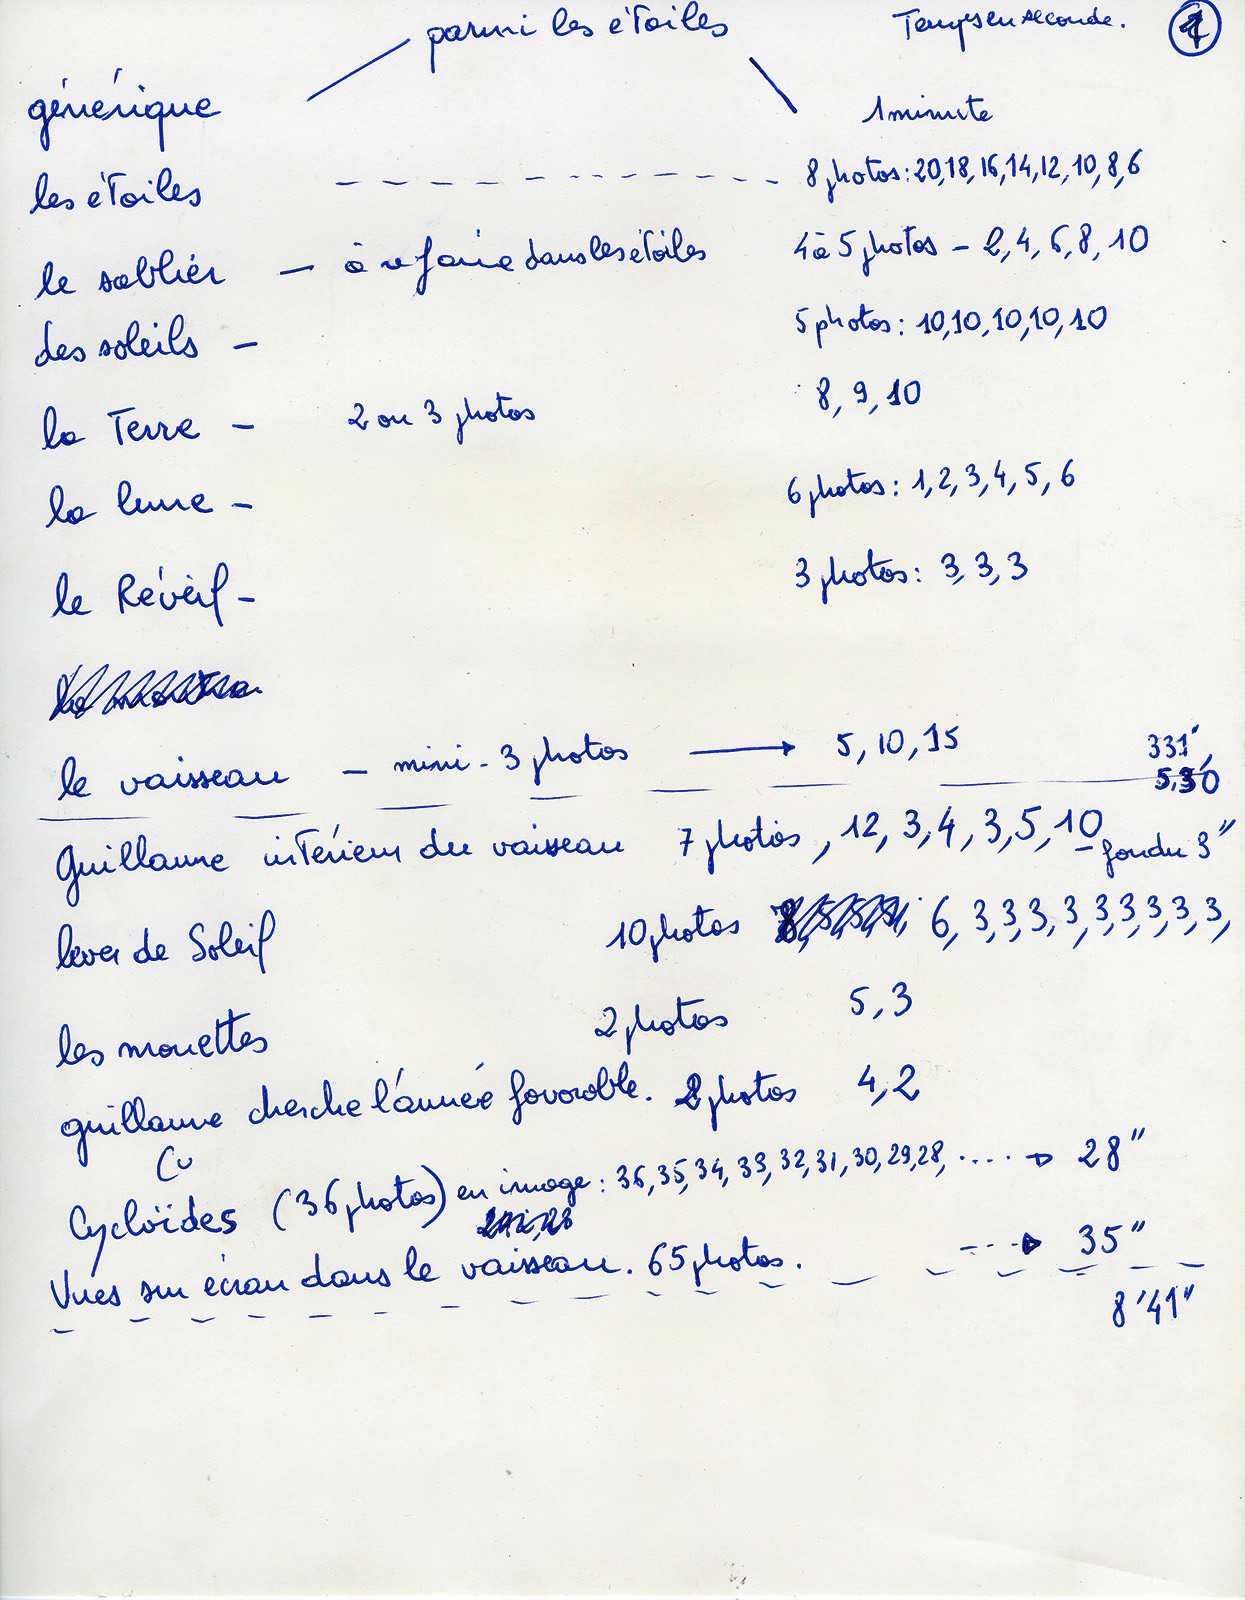 parmi les étoiles
Temps en seconde.
1
générique 1 minute
les étoiles - - - - - - - - - - 8 photos : 20,18,16,14,12,10,8,6
le sablier — à refaire dans les étoiles 4 à 5 photos – 2,4,6,8,10
des soleils – 5 photos : 10,10,10,10,10
la Terre – 2 ou 3 photos 8, 9, 10
la lune – 6 photos : 1,2,3,4,5,6
le Réveil – 3 photos : 3,3,3
le vaisseau – mini - 3 photos → 5, 10, 15 331"
5,30
Guillaume intérieur du vaisseau 7 photos, 12, 3, 4, 3, 5, 10
– fondu 3"
lever de Soleil 10 photos 6, 3,3,3,3,3,3,3,3,3,
les mouettes 2 photos 5,3
guillaume cherche l'année favorable. 2 photos 4,2
Cycloïdes (36 photos) en image : 36,35,34,33,32,31,30,29,28, ....→ 28"
Vues sur écran dans le vaisseau. 65 photos. - - -→ 35"
8'41"